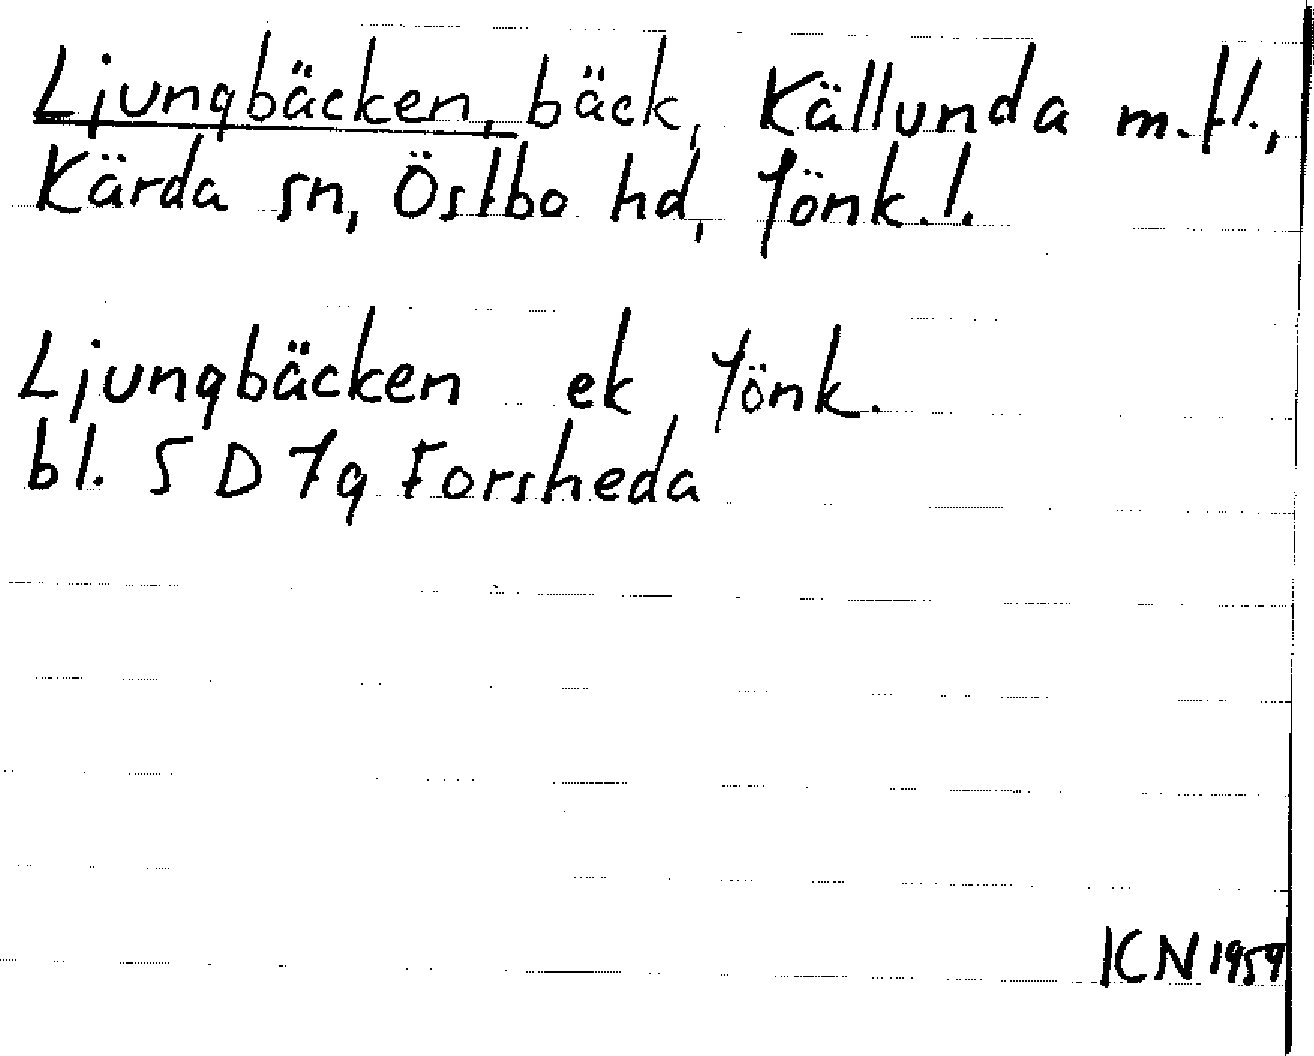 Ljungbäcken, bäck, Källunda m.fl.,
Kärda sn, Östbo hd, Jönk.l.
Ljungbäcken ek Jönk.
bl. 5 D 7g Forsheda
ICN 1959